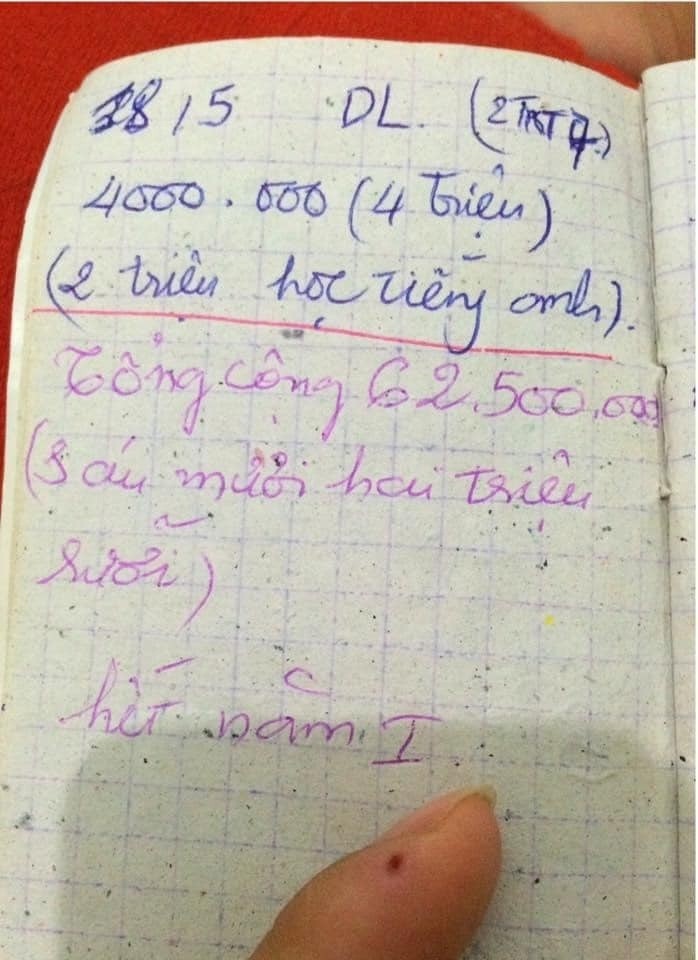 18/5 DL.
4000.000 (4 Triệu)
(2 triệu học tiếng anh).
Tổng cộng 62.500.000
(Sáu mươi hai triệu
rưỡi)
hết năm I